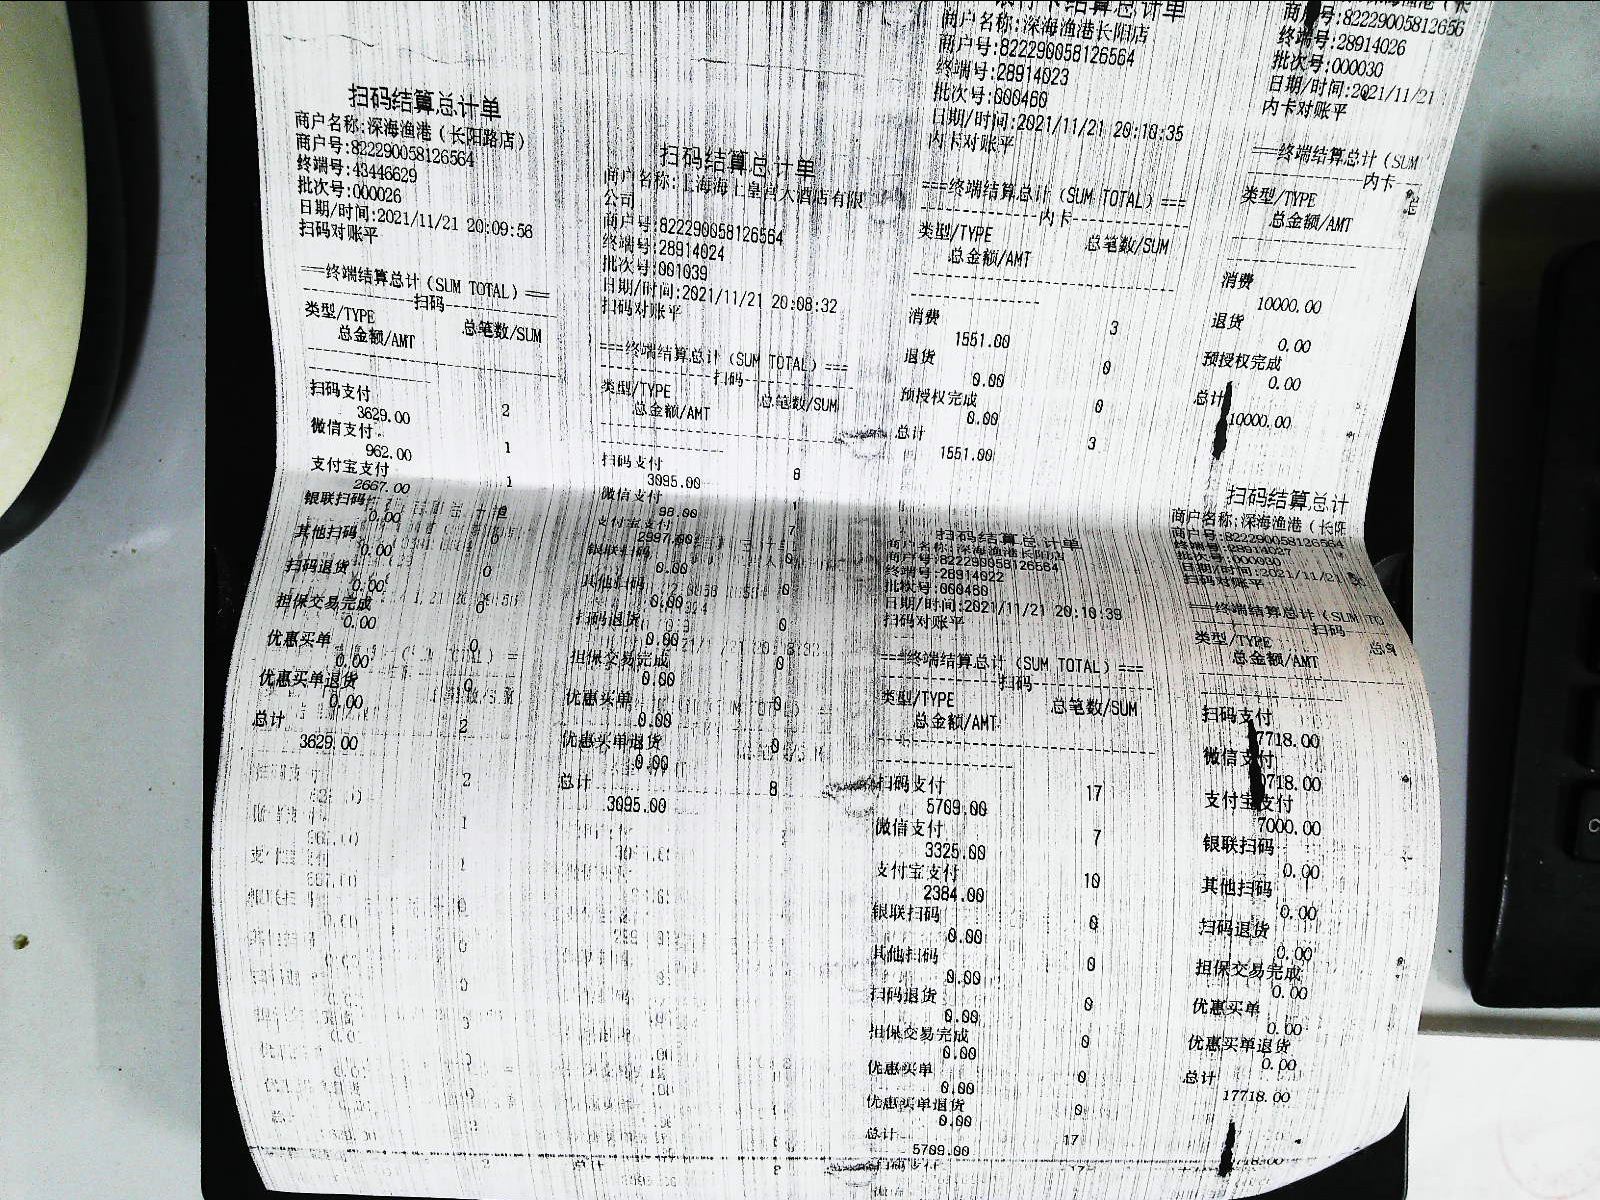 扫码结算总计单
商户名称:深海渔港(长阳路店)
商户号:822290058126564
终端号:43446629
批次号:000026
日期/时间:2021/11/21 20:09:56
扫码对账平
===终端结算总计(SUM TOTAL)===
扫码
类型/TYPE 总笔数/SUM
总金额/AMT
扫码支付
3629.00 2
微信支付
962.00 1
支付宝支付
2667.00 1
银联扫码
0.00 0
其他扫码
0.00 0
扫码退货
0.00 0
担保交易完成
0.00 0
优惠买单
0.00 0
优惠买单退货
0.00 0
总计 2
3629.00
扫码结算总计单
商户名称:上海海上皇宫大酒店有限
公司
商户号:822290058126564
终端号:28914024
批次号:001039
日期/时间:2021/11/21 20:08:32
扫码对账平
===终端结算总计(SUM TOTAL)===
扫码
类型/TYPE 总笔数/SUM
总金额/AMT
扫码支付
3095.00 8
微信支付
98.00 1
支付宝支付
2997.00 7
银联扫码
0.00 0
其他扫码
0.00 0
扫码退货
0.00 0
担保交易完成
0.00 0
优惠买单
0.00 0
优惠买单退货
0.00 0
总计 8
3095.00
结算总计单
商户名称:深海渔港长阳店
商户号:822290058126564
终端号:28914023
批次号:000460
日期/时间:2021/11/21 20:10:35
内卡对账平
===终端结算总计(SUM TOTAL)===
内卡
类型/TYPE 总笔数/SUM
总金额/AMT
消费
1551.00 3
退货
0.00 0
预授权完成
0.00 0
总计
1551.00 3
扫码结算总计单
商户名称:深海渔港长阳店
商户号:822290058126564
终端号:28914022
批次号:000460
日期/时间:2021/11/21 20:10:39
扫码对账平
===终端结算总计(SUM TOTAL)===
扫码
类型/TYPE 总笔数/SUM
总金额/AMT
扫码支付
5709.00 17
微信支付
3325.00 7
支付宝支付
2384.00 10
银联扫码
0.00 0
其他扫码
0.00 0
扫码退货
0.00 0
担保交易完成
0.00 0
优惠买单
0.00 0
优惠买单退货
0.00 0
总计 17
5709.00
商户号:822290058126
终端号:28914026
批次号:000030
日期/时间:2021/11/21
内卡对账平
===终端结算总计(SUM
内卡
类型/TYPE
总金额/AMT
消费
10000.00
退货
0.00
预授权完成
0.00
总计
10000.00
扫码结算总计
商户名称:深海渔港(长阳
商户号:822290058126564
终端号:28914027
批次号:000030
日期/时间:2021/11/21
扫码对账平
===终端结算总计(SUM TO
扫码
类型/TYPE
总金额/AMT
扫码支付
7718.00
微信支付
0718.00
支付宝支付
7000.00
银联扫码
0.00
其他扫码
0.00
扫码退货
0.00
担保交易完成
0.00
优惠买单
0.00
优惠买单退货
0.00
总计
17718.00